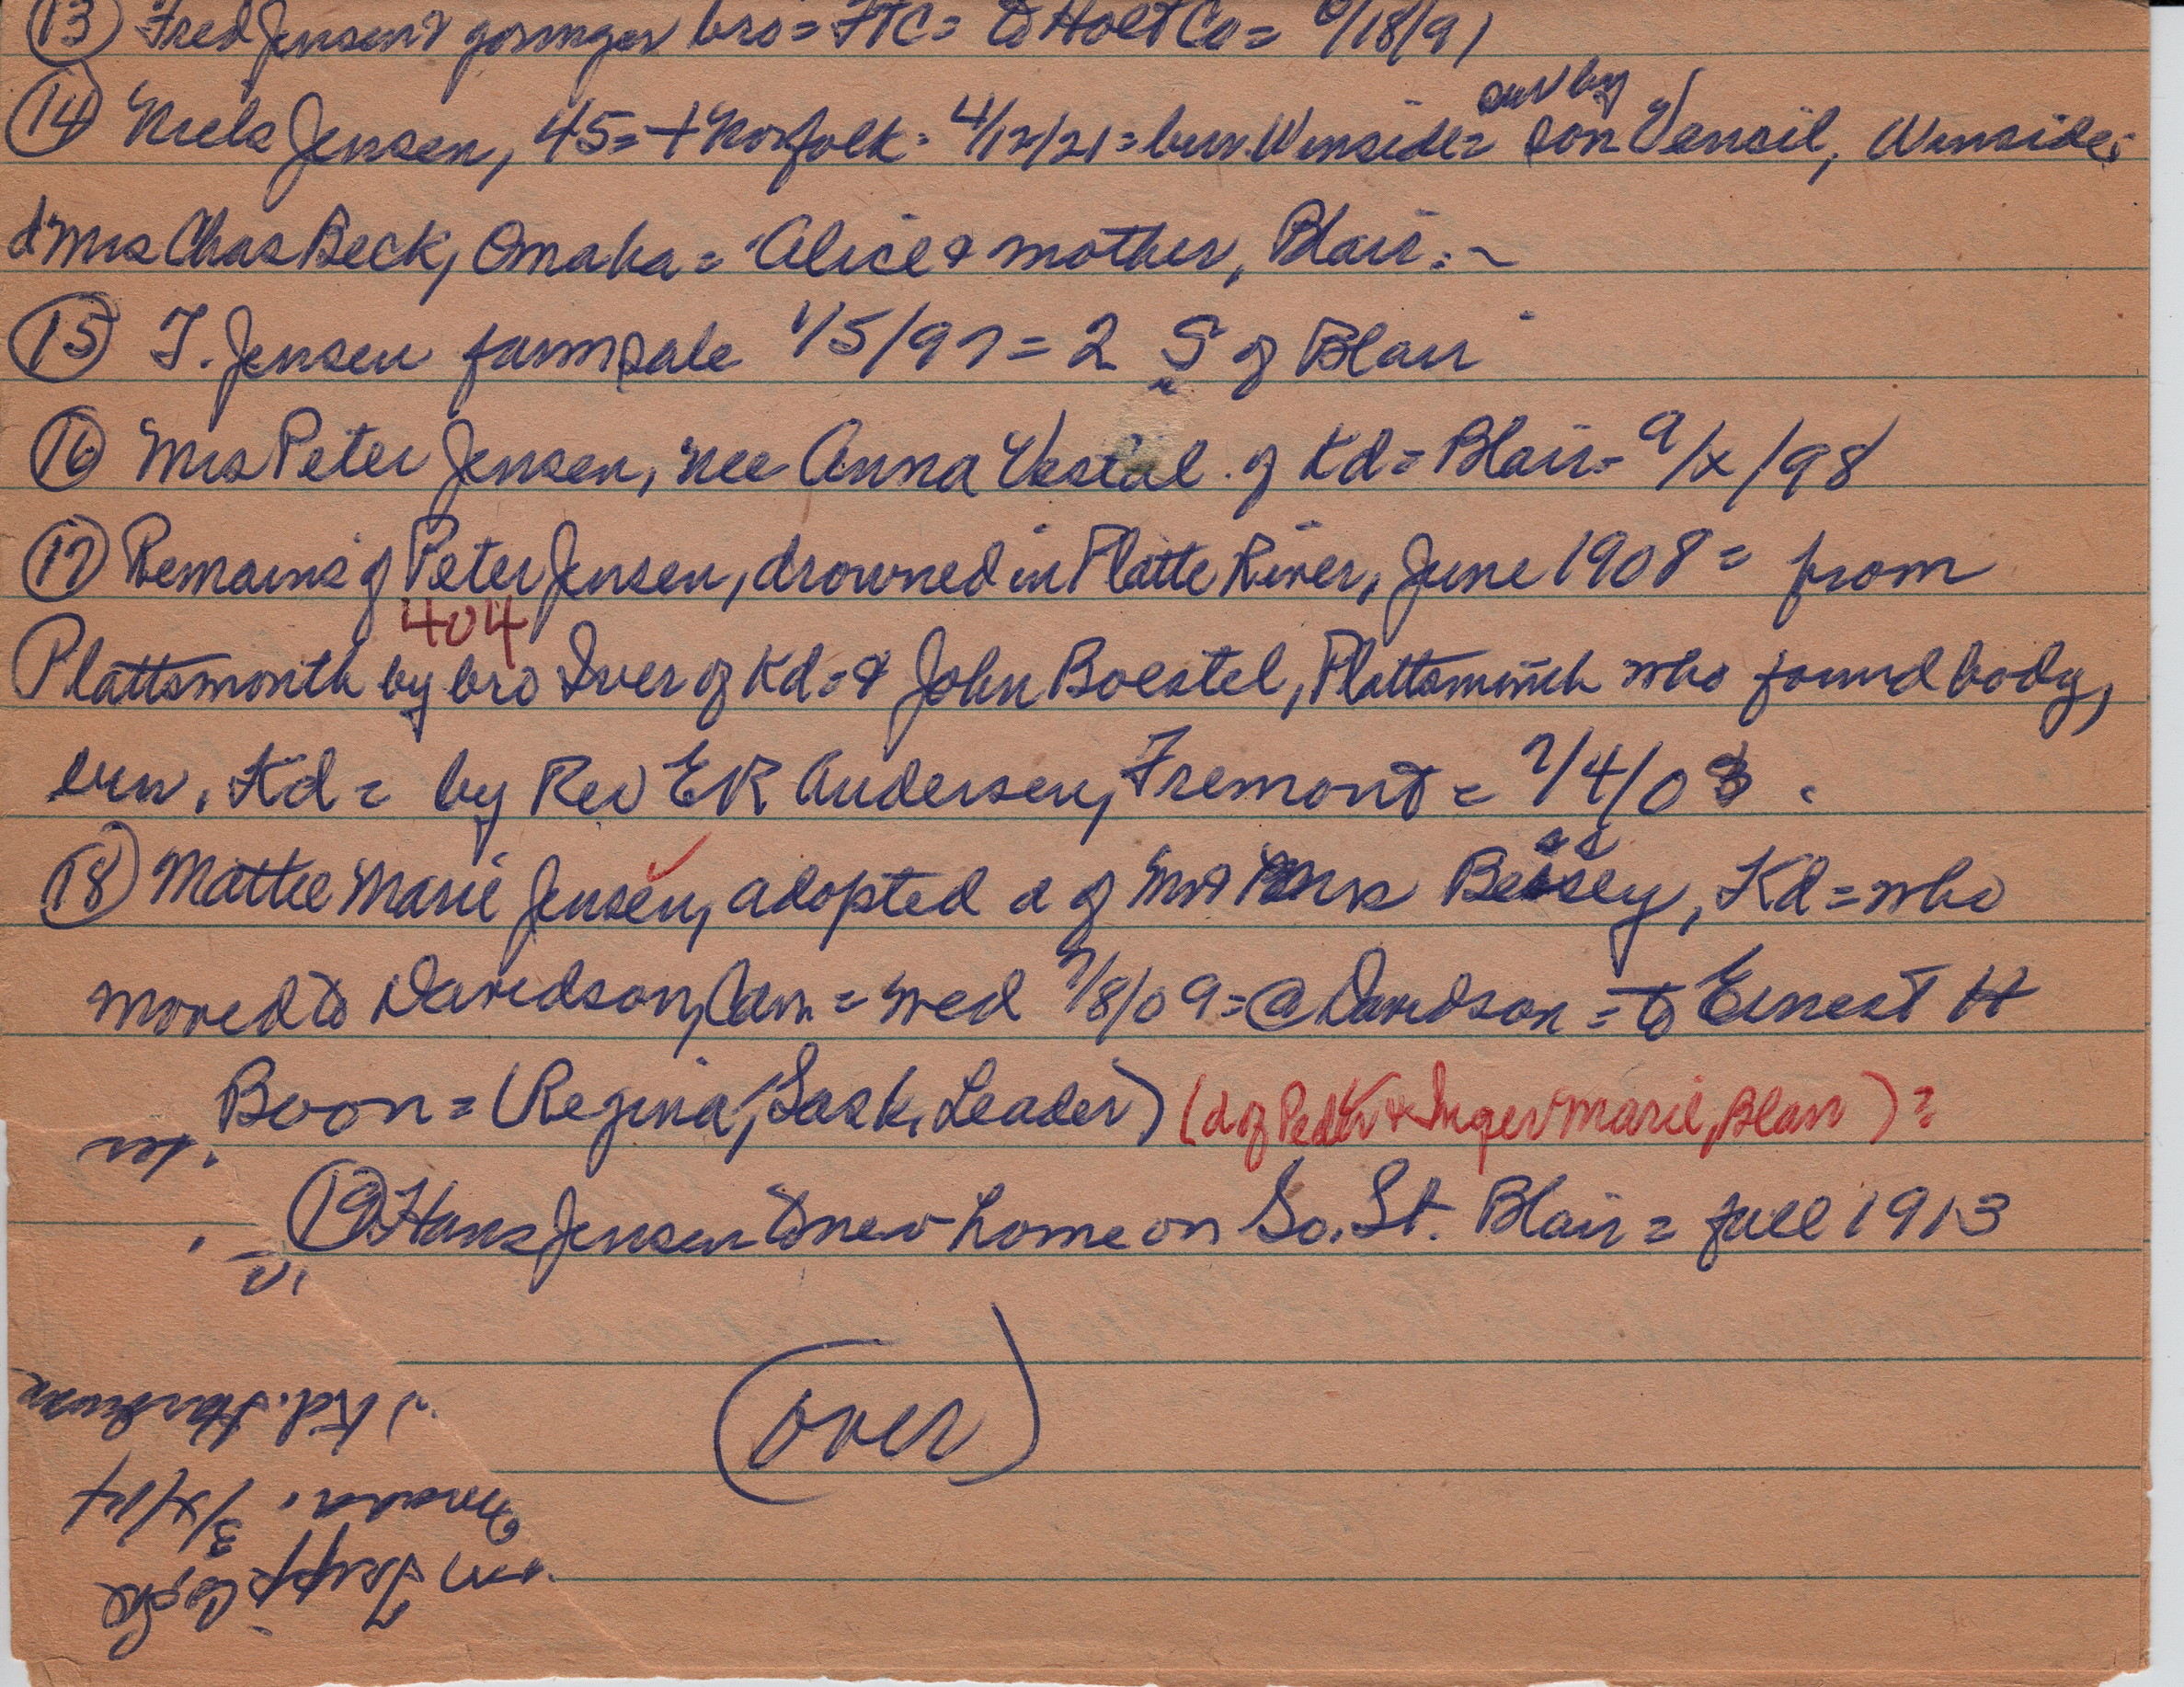 (13) Fred Jensen & younger bro = FTC = to Holt Co = 6/18/91
surv by
(14) Niels Jensen, 45 = + Norfolk = 4/12/21 = bur. Winside = son Vensil, Winside;
d Mrs Chas Beck, Omaha = Alice & mother, Blair. ~
(15) T. Jensen farm sale 1/5/97 = 2 S of Blair
(16) Mrs Peter Jensen, nee Anna Vestal of Kd = Blair = 9/x/98
(17) Remains of Peter Jensen, drowned in Platte River, June 1908 = from
404
Plattsmouth by bro Iver of Kd = & John Boestel, Plattsmouth who found body,
bur. Kd = by Rev ER Andersen, Fremont = 7/4/08.
(18) Mattie Marie Jensen, adopted d of Mr & Mrs Bessey, Kd = who
moved to Davidson, Can. = wed 7/8/09 = @ Davidson = to Ernest H
Boon = (Regina, Sask, Leader) (d of Peder & Inger Marie, Blair) =
(19) Hans Jensen to new home on So. St. Blair = fall 1913
(over)
Tripp Co, SD
3/x/14
Kd.